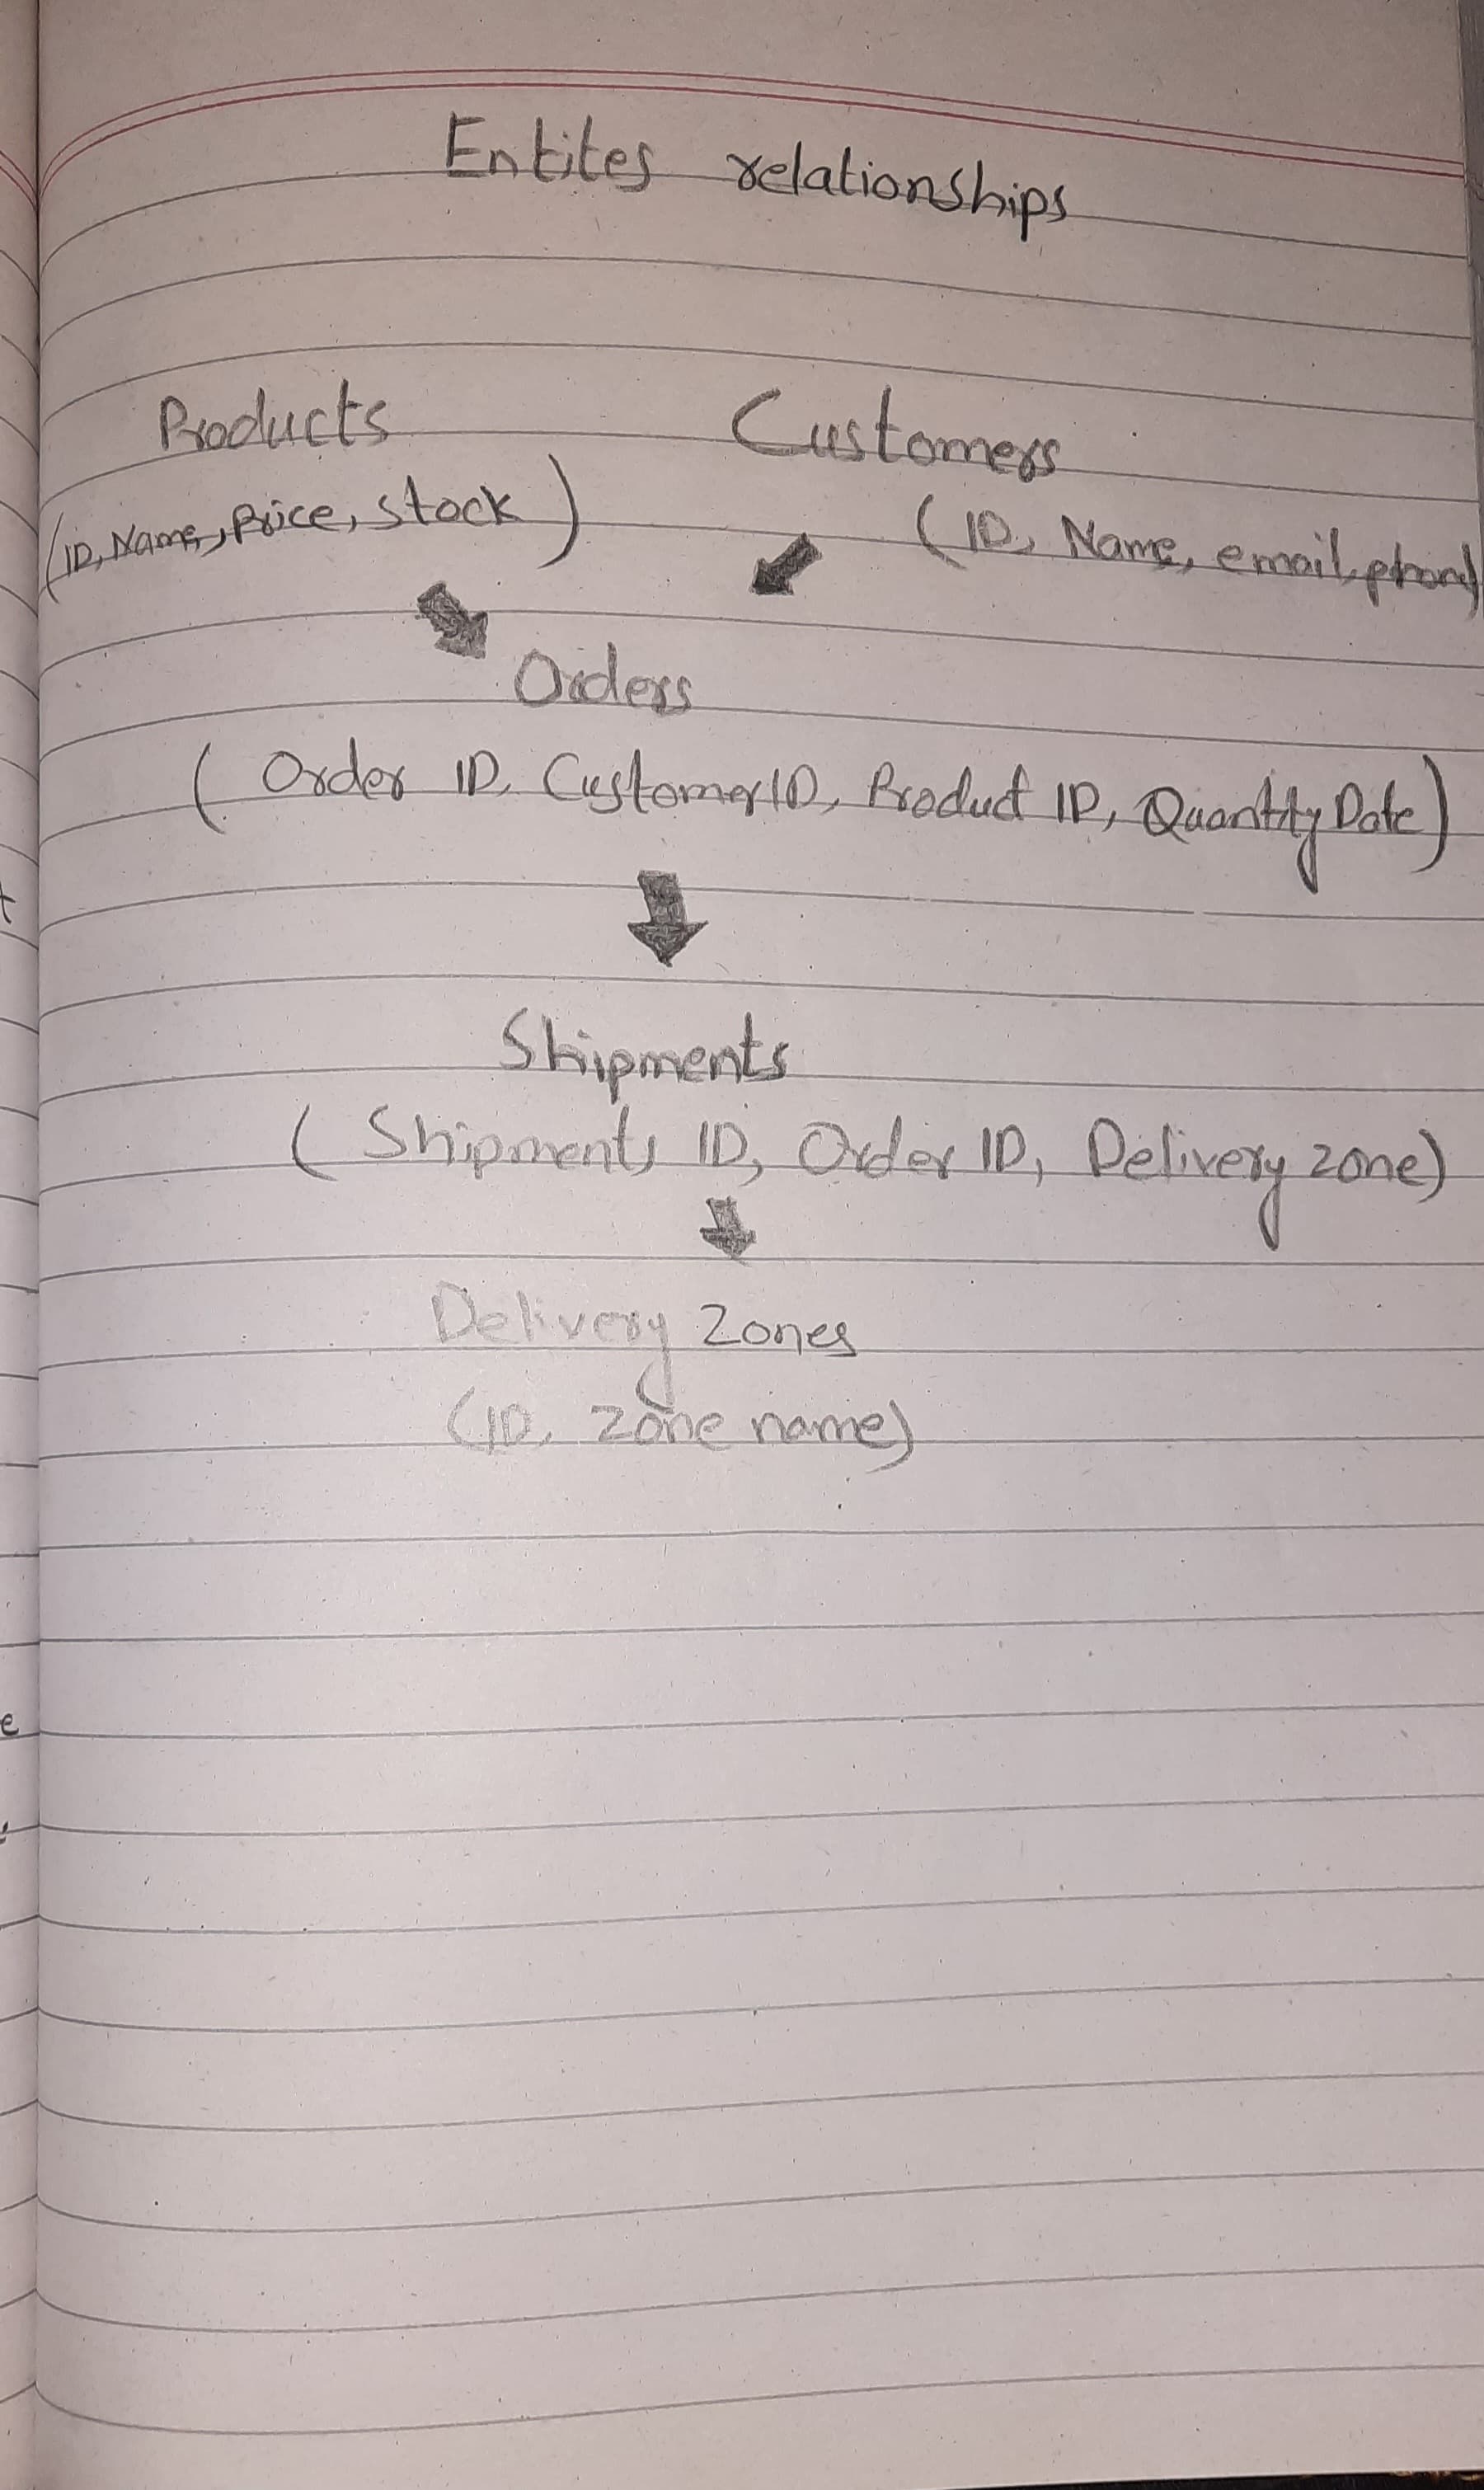 Entites relationships
Products
Customers
(ID, Name, Price, stock)
(ID, Name, email, phone)
Orders
(Order ID, CustomerID, Product ID, Quantity Date)
Shipments
(Shipments ID, Order ID, Delivery zone)
Delivery Zones
(ID, Zone name)
t
e